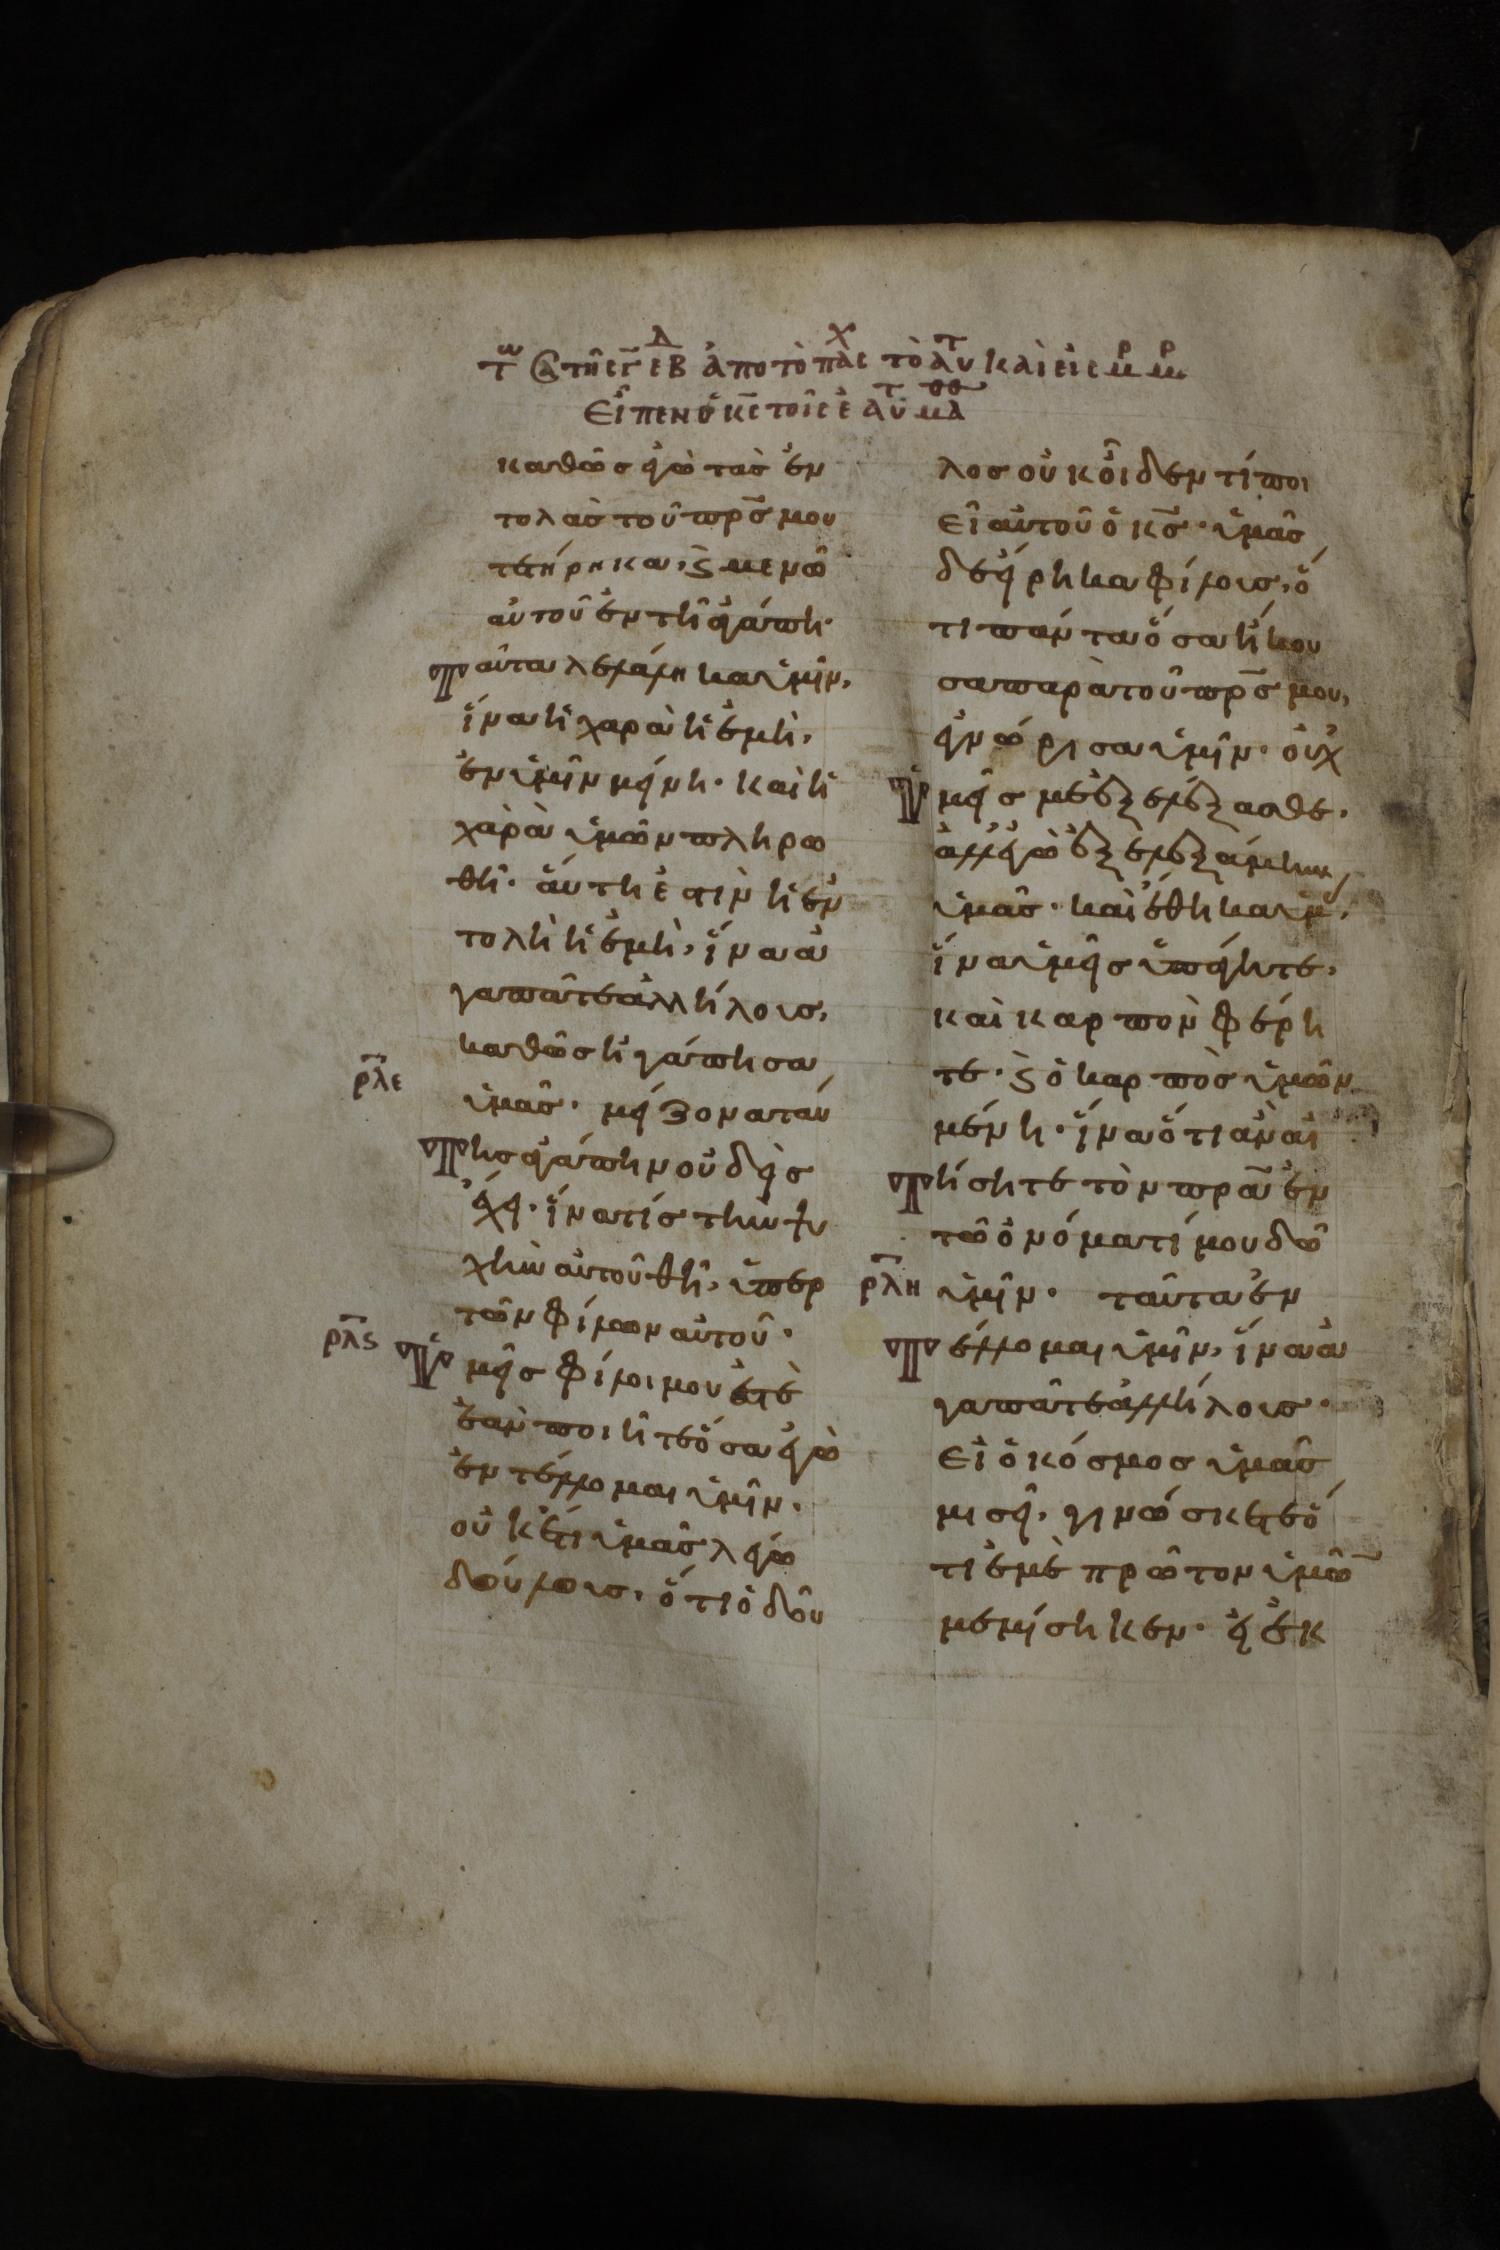 καθὼς ἐγὼ τὰς ἐν
τολὰς τοῦ πρ̅ς μου
τετήρηκα, ϗ μενῶ
αὐτοῦ ἐν τῆ ἀγάπη·
Ταῦτα λελάληκα ὑμῖν,
ἵνα ἡ χαρὰ ἡ ἐμὴ,
ἐν ὑμῖν μείνη· καὶ ἡ
χαρὰ ὑμῶν πληρω
θῆ· αὕτη ἐστὶν ἡ ἐν
τολὴ ἡ ἐμὴ, ἵνα ἀ
γαπᾶτε ἀλλήλους,
καθὼς ἠγάπησα
ρλε
ὑμᾶς· μείζονα ταύ
Της ἀγάπην οὐδεὶς
ἔχει· ἵνα τίς τὴν ψυ
χὴν αὐτοῦ θῆ, ὑπερ
τῶν φίλων αὐτοῦ·
ρλς
Ὑμεῖς φίλοι μου ἐστὲ
ἐὰν ποιῆτε ὅσα ἐγὼ
ἐντέλλομαι ὑμῖν·
οὐκέτι ὑμᾶς λέγω
δούλους, ὅτι ὁ δοῦ
λος οὐκ οἶδεν τί ποι
εῖ αὐτοῦ ὁ κ̅ς· ὑμᾶς
δὲ εἴρηκα φίλους, ὅ
τι πάντα ὅσα ἤκου
σα παρὰ τοῦ πρ̅ς μου,
ἐγνώρισα ὑμῖν· οὐχ
Ὑμεῖς με ἐξελέξασθε·
ἀλλ' ἐγὼ ἐξελεξάμην
ὑμᾶς· καὶ ἔθηκα ὑμ,
ἵνα ὑμεῖς ὑπάγητε,
καὶ καρπὸν φέρη
τε· ϗ ὁ καρπὸς ὑμῶν
μένη· ἵνα ὅτι ἂν αἰ
Τήσητε τὸν πρ̅α ἐν
τῶ ὀνόματί μου δῶ
ρλη
ὑμῖν· ταῦτα ἐν
Τέλλομαι ὑμῖν, ἵνα ἀ
γαπᾶτε ἀλλήλους·
εἰ ὁ κόσμος ὑμᾶς
μισεῖ, γινώσκετε ὅ
τι ἐμὲ πρῶτον ὑμῶ̅
μεμίσηκεν· εἰ ἐκ